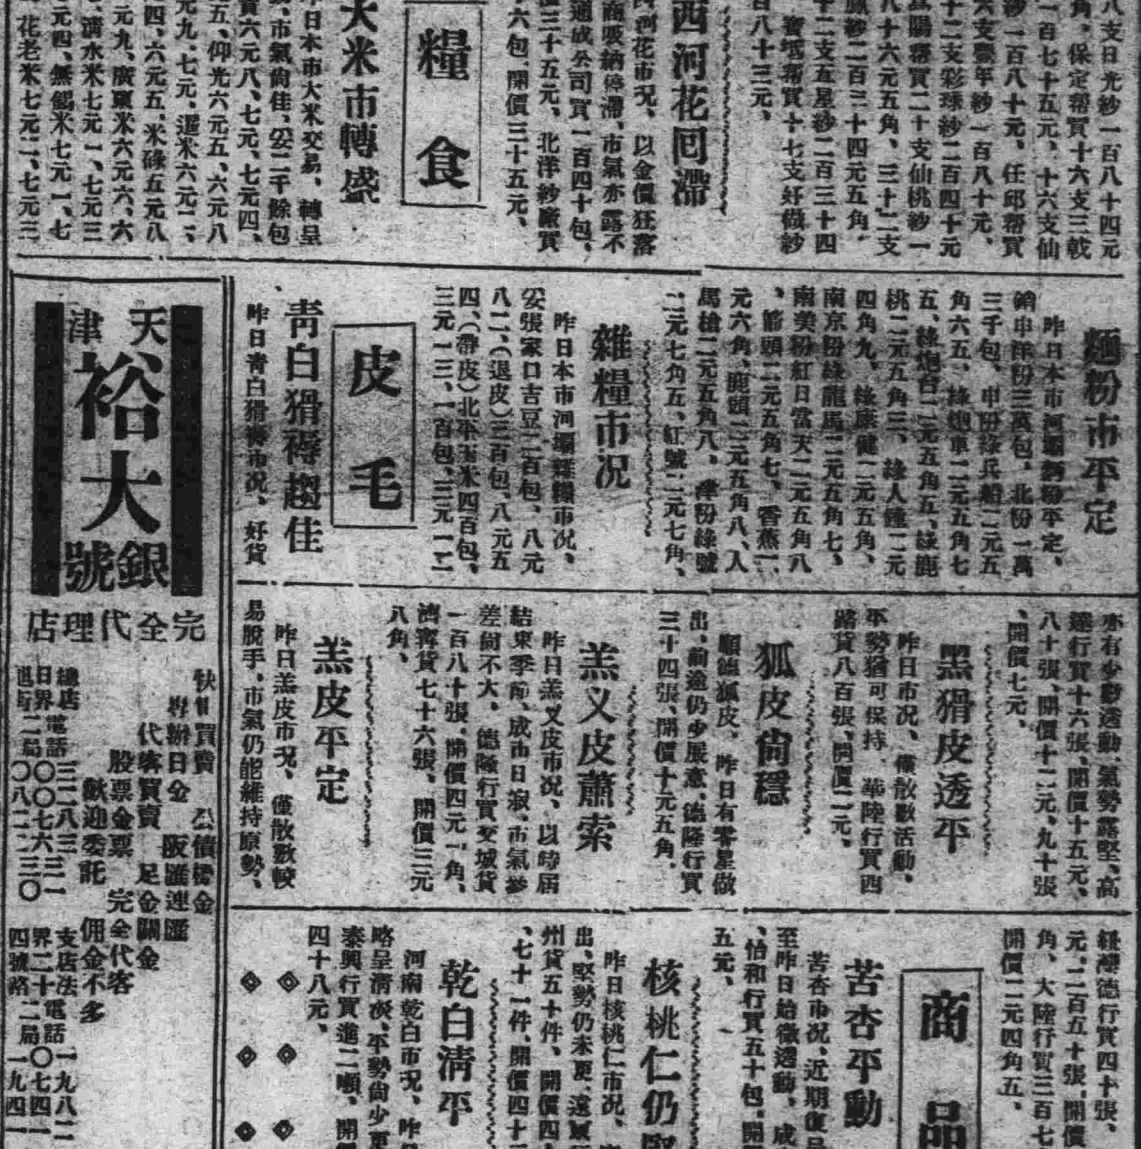 八支日光紗一百八十四元
角、保定帮買十六支三戟
一百七十五元、十六支仙
紗一百八十元、任邱帮買
六支豐年紗一百八十元、
十二支彩球紗二百四十元
八十六元五角、三十二支
鳳紗二百三十四元五角、
十二支五星紗二百三十四
寶坻帮買十七支好做紗
百八十三元、
西河花回滯
西河花市况、以金價狂落
商吸納停滯、市氣亦露不
通成公司買一百四十包、
三十五元、北洋紗廠買
六包、開價三十五元、
糧食
大米市轉盛
昨日本市大米交易、轉呈
市氣尙佳、妥二千餘包
六元八、七元、七元四、
五、仰光六元五、六元八
元九、七元、暹米六元二、
四、六元五、米碌五元八
元九、廣東米六元六、六
清水米七元一、七元三
元四、無錫米七元一、七
花老米七元二、七元三
麵粉市平定
昨日本市河壩麵粉平定、
銷申洋粉三萬包、北粉一萬
三千包、申粉綠兵船二元五
角六五、綠炮車二元五角七
五、綠炮台二元五角五、綠鹿
桃二元五角三、綠人鐘二元
四角九、綠康健二元五角、
南京粉綠龍馬二元五角七、
南美粉紅日當天二元五角八
、箭頭二元五角七、香蕉二
元六角、鹿頭二元五角八、人
馬槍二元五角八、津粉綠號
二元七角五、紅號二元七角、
雜糧市况
昨日本市河壩雜糧市况、
妥張家口吉豆二百包、八元
八二、(退皮)三百包、八元五
四、(帶皮)北平玉米四百包、
三元一三、一百包、三元一二
皮毛
靑白猾褥趨佳
昨日靑白猾褥市况、好貨
亦有少數透動、氣勢露堅、高
達行買十六張、開價十五元、
八十張、開價十二元、九十張
、開價七元、
黑猾皮透平
昨日市况、僅散數活動、
平勢猶可保持、華陸行買西
路貨八百張、開價二元、
狐皮尙穩
順德狐皮、昨日有零星做
出、前途仍少展意、德隆行買
三十四張、開價十元五角、
羔叉皮蕭索
昨日羔叉皮市况、以時屆
結束季節、成市日寂、市氣參
差尙不大、德隆行買交城貨
一百八十張、開價四元一角、
濟寧貨七十六張、開價三元
八角、
羔皮平定
昨日羔皮市况、僅散數較
易脫手、市氣仍能維持原勢、
德行買四十張、
元、二百五十張、開價
角、大陸行買三百七
開價二元四角五、
商品
苦杏平動
苦杏市况、近期復呈
至昨日始微透動、成
、怡和行買五十包、開
五元、
核桃仁仍堅
昨日核桃仁市况、
出、堅勢仍未更、
州貨五十件、開價四
、七十一件、開價四十二
乾白淸平
河南乾白市况、昨
略呈淸淡、平勢尙少更
泰興行買進二噸、開
四十八元、
天津
裕大
銀號
完全代理店
買賣 公債標金
專辦日金 阪匯連匯
代客買賣 足金關金
股票金票 完全代客
歡迎委託 佣金不多
總店電話三二八三一
日界 〇〇七六三
旭街二局〇八二二三〇
支店法電話一九八二
界二十 〇七四
四號路二局一九四一